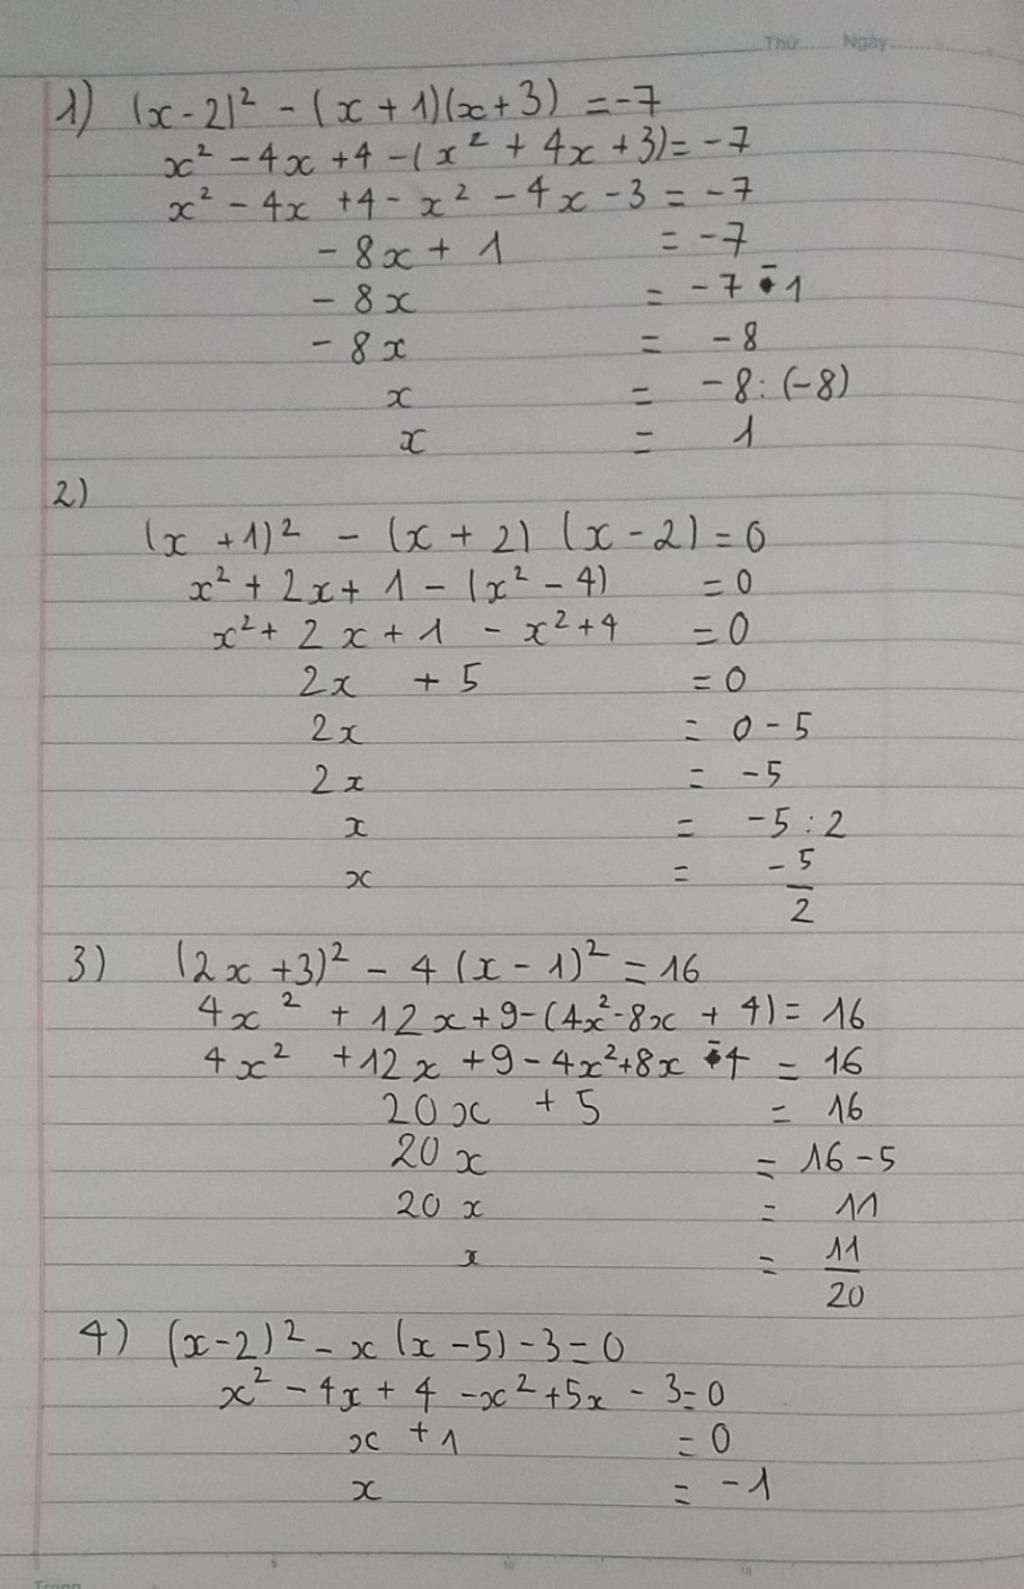 Thứ...... Ngày................
1) (x-2)² - (x + 1)(x+3) = -7
x² - 4x +4 -(x² + 4x +3) = -7
x² - 4x +4 - x² - 4x - 3 = -7
- 8x + 1 = -7
- 8x = -7 - 1
- 8x = -8
x = -8 : (-8)
x = 1
2)
(x +1)² - (x + 2) (x - 2) = 0
x² + 2x + 1 - (x² - 4) = 0
x² + 2x + 1 - x² + 4 = 0
2x + 5 = 0
2x = 0 - 5
2x = -5
x = -5 : 2
x = -5/2
3) (2x +3)² - 4 (x - 1)² = 16
4x² + 12x + 9 - (4x² - 8x + 4) = 16
4x² + 12x + 9 - 4x² + 8x - 4 = 16
20x + 5 = 16
20x = 16 - 5
20x = 11
x = 11/20
4) (x-2)² - x (x - 5) - 3 = 0
x² - 4x + 4 - x² + 5x - 3 = 0
x + 1 = 0
x = -1
5 10 15
Trang